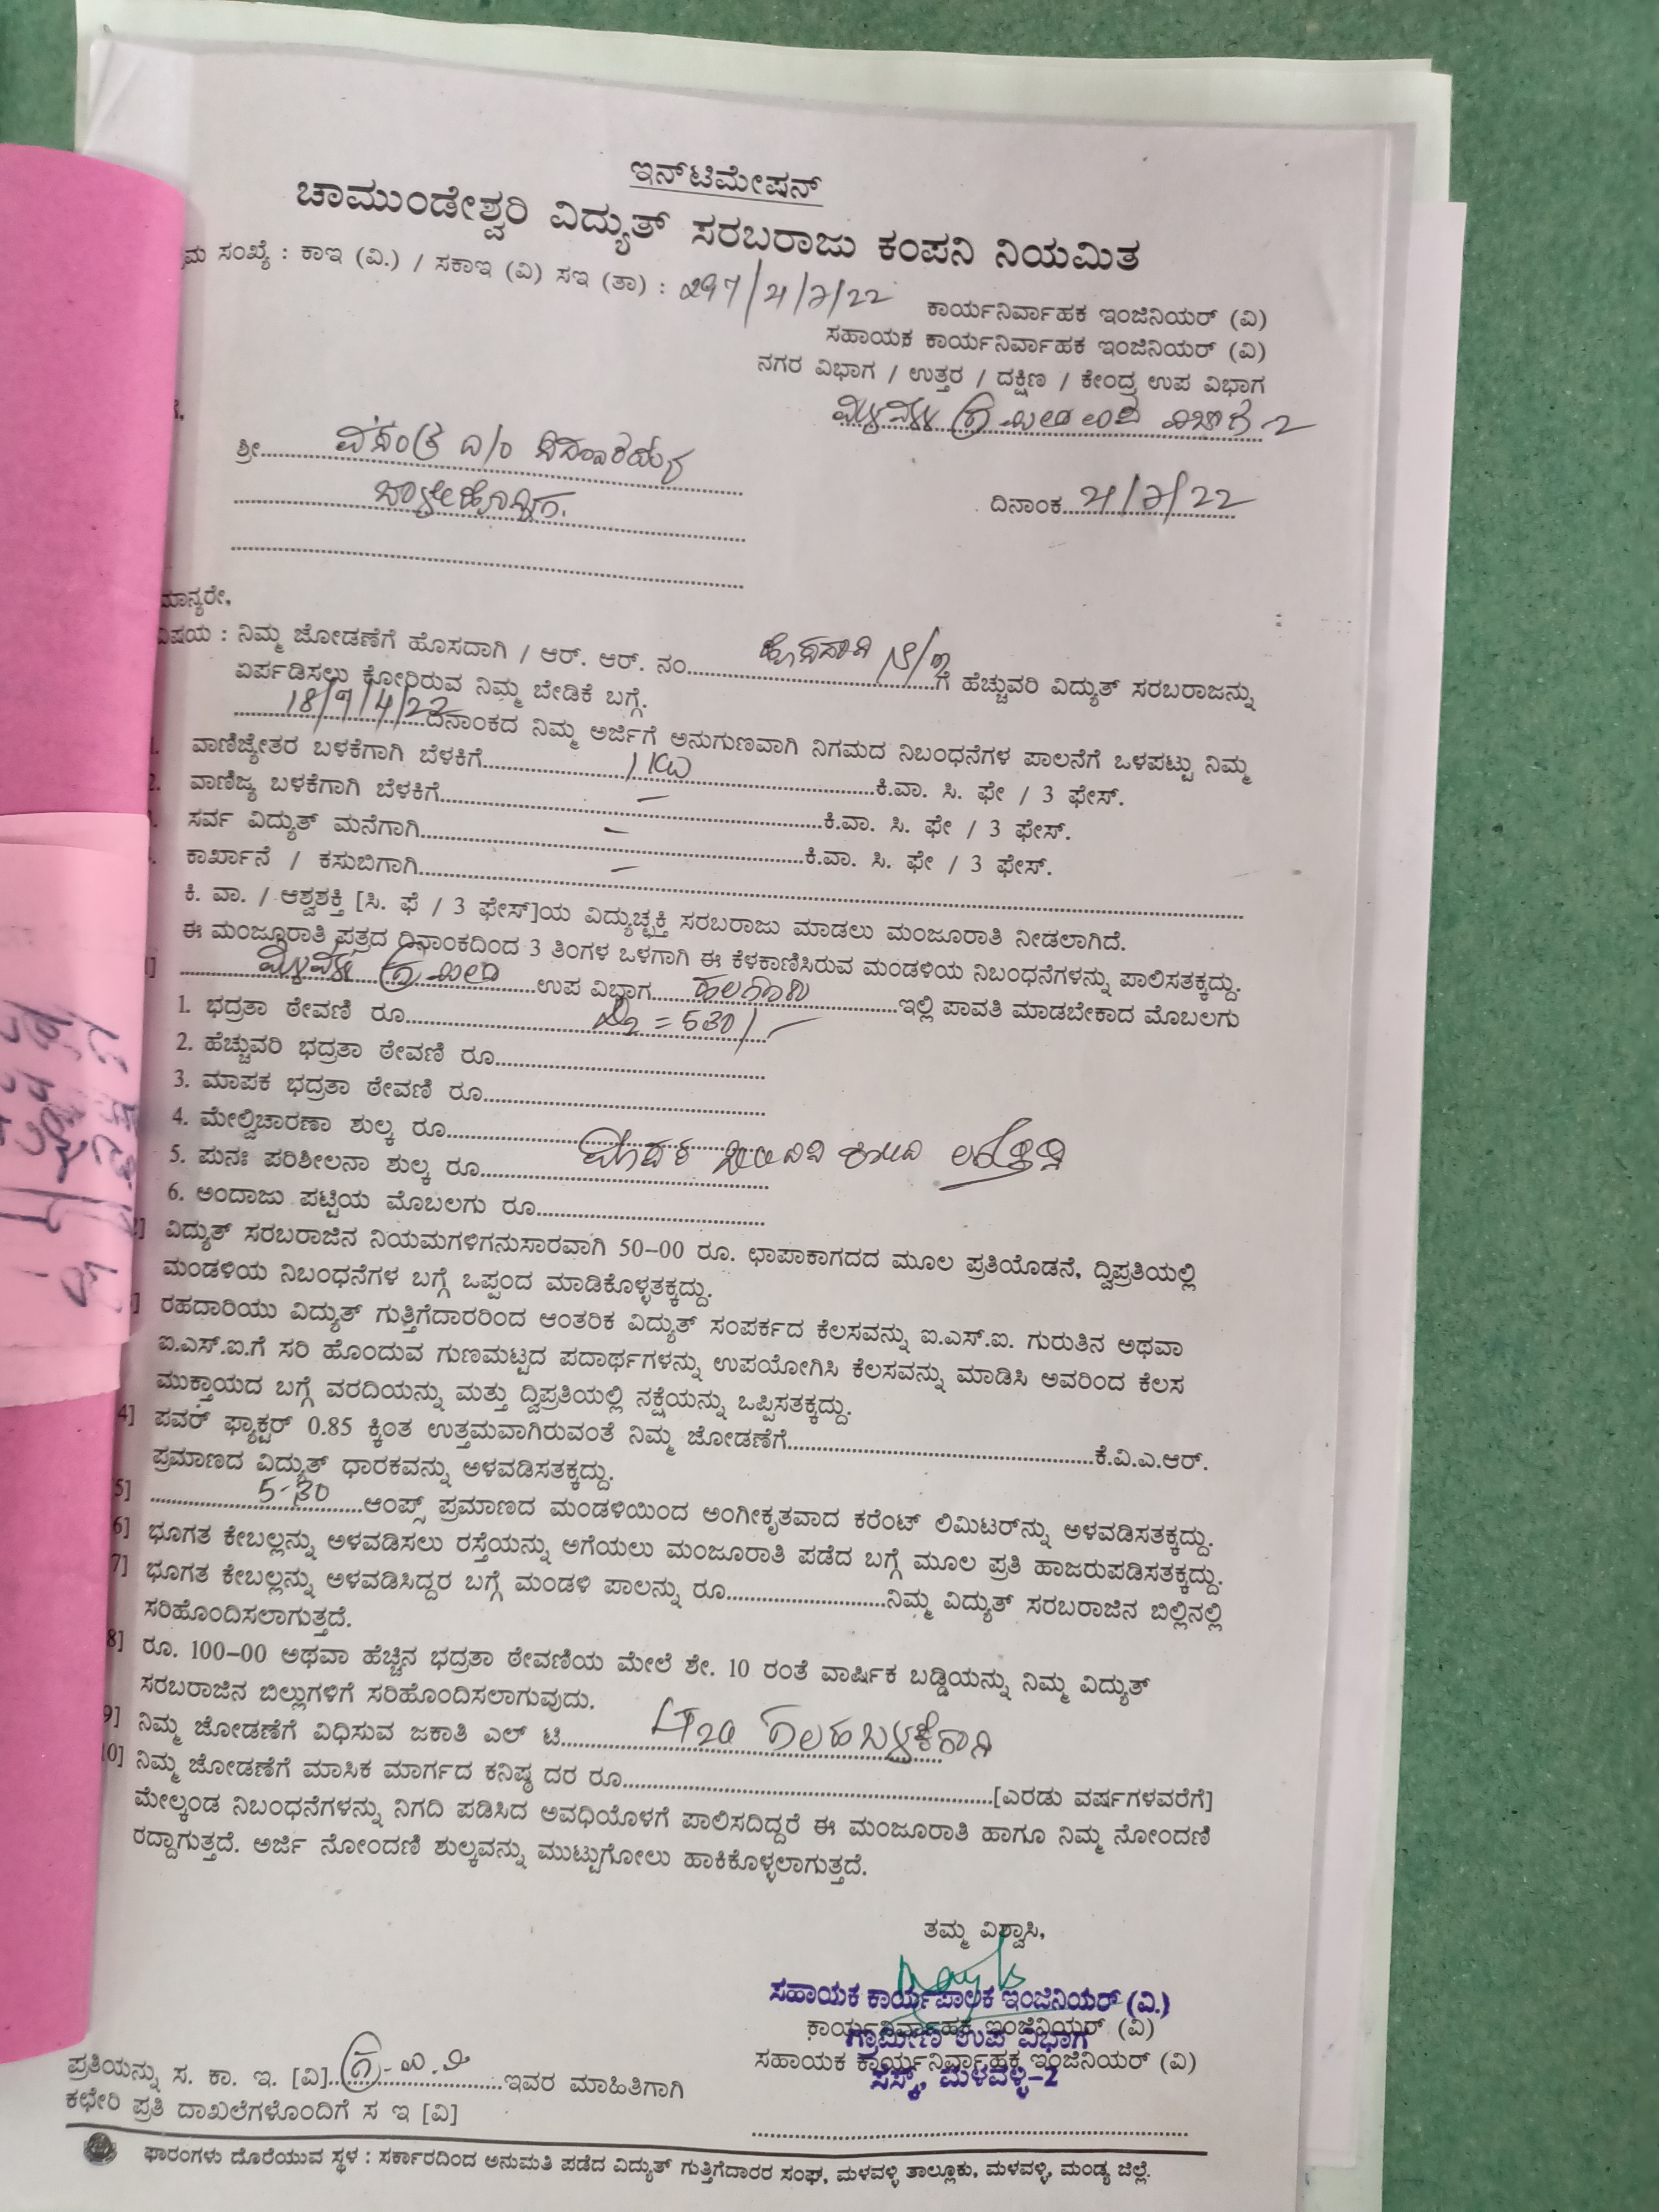 ಇನ್‌ಟಿಮೇಷನ್
ಚಾಮುಂಡೇಶ್ವರಿ ವಿದ್ಯುತ್ ಸರಬರಾಜು ಕಂಪನಿ ನಿಯಮಿತ
ಮ ಸಂಖ್ಯೆ : ಕಾಇ (ವಿ.) / ಸಕಾಇ (ವಿ) ಸಇ (ತಾ) : 297/21/7/22
ಕಾರ್ಯನಿರ್ವಾಹಕ ಇಂಜಿನಿಯರ್ (ವಿ)
ಸಹಾಯಕ ಕಾರ್ಯನಿರ್ವಾಹಕ ಇಂಜಿನಿಯರ್ (ವಿ)
ನಗರ ವಿಭಾಗ / ಉತ್ತರ / ದಕ್ಷಿಣ / ಕೇಂದ್ರ ಉಪ ವಿಭಾಗ
ಶ್ರೀ
ದಿನಾಂಕ 21/7/22
ಮಾನ್ಯರೇ,
ವಿಷಯ : ನಿಮ್ಮ ಜೋಡಣೆಗೆ ಹೊಸದಾಗಿ / ಆರ್. ಆರ್. ನಂ. ಗೆ ಹೆಚ್ಚುವರಿ ವಿದ್ಯುತ್ ಸರಬರಾಜನ್ನು
ಏರ್ಪಡಿಸಲು ಕೋರಿರುವ ನಿಮ್ಮ ಬೇಡಿಕೆ ಬಗ್ಗೆ.
ದಿನಾಂಕದ ನಿಮ್ಮ ಅರ್ಜಿಗೆ ಅನುಗುಣವಾಗಿ ನಿಗಮದ ನಿಬಂಧನೆಗಳ ಪಾಲನೆಗೆ ಒಳಪಟ್ಟು ನಿಮ್ಮ
ವಾಣಿಜ್ಯೇತರ ಬಳಕೆಗಾಗಿ ಬೆಳಕಿಗೆ 1 KW ಕಿ.ವಾ. ಸಿ. ಫೇ / 3 ಫೇಸ್.
2. ವಾಣಿಜ್ಯ ಬಳಕೆಗಾಗಿ ಬೆಳಕಿಗೆ – ಕಿ.ವಾ. ಸಿ. ಫೇ / 3 ಫೇಸ್.
ಸರ್ವ ವಿದ್ಯುತ್ ಮನೆಗಾಗಿ – ಕಿ.ವಾ. ಸಿ. ಫೇ / 3 ಫೇಸ್.
ಕಾರ್ಖಾನೆ / ಕಸುಬಿಗಾಗಿ –
ಕಿ. ವಾ. / ಆಶ್ವಶಕ್ತಿ [ಸಿ. ಫೆ / 3 ಫೇಸ್]ಯ ವಿದ್ಯುಚ್ಛಕ್ತಿ ಸರಬರಾಜು ಮಾಡಲು ಮಂಜೂರಾತಿ ನೀಡಲಾಗಿದೆ.
ಈ ಮಂಜೂರಾತಿ ಪತ್ರದ ದಿನಾಂಕದಿಂದ 3 ತಿಂಗಳ ಒಳಗಾಗಿ ಈ ಕೆಳಕಾಣಿಸಿರುವ ಮಂಡಳಿಯ ನಿಬಂಧನೆಗಳನ್ನು ಪಾಲಿಸತಕ್ಕದ್ದು.
ಉಪ ವಿಭಾಗ ಇಲ್ಲಿ ಪಾವತಿ ಮಾಡಬೇಕಾದ ಮೊಬಲಗು
1. ಭದ್ರತಾ ಠೇವಣಿ ರೂ. = 530/-
2. ಹೆಚ್ಚುವರಿ ಭದ್ರತಾ ಠೇವಣಿ ರೂ.
3. ಮಾಪಕ ಭದ್ರತಾ ಠೇವಣಿ ರೂ.
4. ಮೇಲ್ವಿಚಾರಣಾ ಶುಲ್ಕ ರೂ.
5. ಪುನಃ ಪರಿಶೀಲನಾ ಶುಲ್ಕ ರೂ.
6. ಅಂದಾಜು ಪಟ್ಟಿಯ ಮೊಬಲಗು ರೂ.
ವಿದ್ಯುತ್ ಸರಬರಾಜಿನ ನಿಯಮಗಳಿಗನುಸಾರವಾಗಿ 50-00 ರೂ. ಛಾಪಾಕಾಗದದ ಮೂಲ ಪ್ರತಿಯೊಡನೆ, ದ್ವಿಪ್ರತಿಯಲ್ಲಿ
ಮಂಡಳಿಯ ನಿಬಂಧನೆಗಳ ಬಗ್ಗೆ ಒಪ್ಪಂದ ಮಾಡಿಕೊಳ್ಳತಕ್ಕದ್ದು.
ರಹದಾರಿಯು ವಿದ್ಯುತ್ ಗುತ್ತಿಗೆದಾರರಿಂದ ಆಂತರಿಕ ವಿದ್ಯುತ್ ಸಂಪರ್ಕದ ಕೆಲಸವನ್ನು ಐ.ಎಸ್.ಐ. ಗುರುತಿನ ಅಥವಾ
ಐ.ಎಸ್.ಐ.ಗೆ ಸರಿ ಹೊಂದುವ ಗುಣಮಟ್ಟದ ಪದಾರ್ಥಗಳನ್ನು ಉಪಯೋಗಿಸಿ ಕೆಲಸವನ್ನು ಮಾಡಿಸಿ ಅವರಿಂದ ಕೆಲಸ
ಮುಕ್ತಾಯದ ಬಗ್ಗೆ ವರದಿಯನ್ನು ಮತ್ತು ದ್ವಿಪ್ರತಿಯಲ್ಲಿ ನಕ್ಷೆಯನ್ನು ಒಪ್ಪಿಸತಕ್ಕದ್ದು.
4] ಪವರ್ ಫ್ಯಾಕ್ಟರ್ 0.85 ಕ್ಕಿಂತ ಉತ್ತಮವಾಗಿರುವಂತೆ ನಿಮ್ಮ ಜೋಡಣೆಗೆ ಕೆ.ವಿ.ಎ.ಆರ್.
ಪ್ರಮಾಣದ ವಿದ್ಯುತ್ ಧಾರಕವನ್ನು ಅಳವಡಿಸತಕ್ಕದ್ದು.
5] 5-30 ಆಂಪ್ಸ್ ಪ್ರಮಾಣದ ಮಂಡಳಿಯಿಂದ ಅಂಗೀಕೃತವಾದ ಕರೆಂಟ್ ಲಿಮಿಟರ್‌ನ್ನು ಅಳವಡಿಸತಕ್ಕದ್ದು.
6] ಭೂಗತ ಕೇಬಲ್ಲನ್ನು ಅಳವಡಿಸಲು ರಸ್ತೆಯನ್ನು ಅಗೆಯಲು ಮಂಜೂರಾತಿ ಪಡೆದ ಬಗ್ಗೆ ಮೂಲ ಪ್ರತಿ ಹಾಜರುಪಡಿಸತಕ್ಕದ್ದು.
7] ಭೂಗತ ಕೇಬಲ್ಲನ್ನು ಅಳವಡಿಸಿದ್ದರ ಬಗ್ಗೆ ಮಂಡಳಿ ಪಾಲನ್ನು ರೂ. ನಿಮ್ಮ ವಿದ್ಯುತ್ ಸರಬರಾಜಿನ ಬಿಲ್ಲಿನಲ್ಲಿ
ಸರಿಹೊಂದಿಸಲಾಗುತ್ತದೆ.
8] ರೂ. 100-00 ಅಥವಾ ಹೆಚ್ಚಿನ ಭದ್ರತಾ ಠೇವಣಿಯ ಮೇಲೆ ಶೇ. 10 ರಂತೆ ವಾರ್ಷಿಕ ಬಡ್ಡಿಯನ್ನು ನಿಮ್ಮ ವಿದ್ಯುತ್
ಸರಬರಾಜಿನ ಬಿಲ್ಲುಗಳಿಗೆ ಸರಿಹೊಂದಿಸಲಾಗುವುದು.
9] ನಿಮ್ಮ ಜೋಡಣೆಗೆ ವಿಧಿಸುವ ಜಕಾತಿ ಎಲ್ ಟಿ
10] ನಿಮ್ಮ ಜೋಡಣೆಗೆ ಮಾಸಿಕ ಮಾರ್ಗದ ಕನಿಷ್ಠ ದರ ರೂ. [ಎರಡು ವರ್ಷಗಳವರೆಗೆ]
ಮೇಲ್ಕಂಡ ನಿಬಂಧನೆಗಳನ್ನು ನಿಗದಿ ಪಡಿಸಿದ ಅವಧಿಯೊಳಗೆ ಪಾಲಿಸದಿದ್ದರೆ ಈ ಮಂಜೂರಾತಿ ಹಾಗೂ ನಿಮ್ಮ ನೋಂದಣಿ
ರದ್ದಾಗುತ್ತದೆ. ಅರ್ಜಿ ನೋಂದಣಿ ಶುಲ್ಕವನ್ನು ಮುಟ್ಟುಗೋಲು ಹಾಕಿಕೊಳ್ಳಲಾಗುತ್ತದೆ.
ತಮ್ಮ ವಿಶ್ವಾಸಿ,
ಸಹಾಯಕ ಕಾರ್ಯಪಾಲಕ ಇಂಜಿನಿಯರ್ (ವಿ.)
ಕಾರ್ಯನಿರ್ವಾಹಕ ಇಂಜಿನಿಯರ್ (ವಿ)
ಗ್ರಾಮೀಣ ಉಪ ವಿಭಾಗ
ಸಹಾಯಕ ಕಾರ್ಯನಿರ್ವಾಹಕ ಇಂಜಿನಿಯರ್ (ವಿ)
ಮಳವಳ್ಳಿ-2
ಪ್ರತಿಯನ್ನು ಸ. ಕಾ. ಇ. [ವಿ] ಇವರ ಮಾಹಿತಿಗಾಗಿ
ಕಛೇರಿ ಪ್ರತಿ ದಾಖಲೆಗಳೊಂದಿಗೆ ಸ ಇ [ವಿ]
ಫಾರಂಗಳು ದೊರೆಯುವ ಸ್ಥಳ : ಸರ್ಕಾರದಿಂದ ಅನುಮತಿ ಪಡೆದ ವಿದ್ಯುತ್ ಗುತ್ತಿಗೆದಾರರ ಸಂಘ, ಮಳವಳ್ಳಿ ತಾಲ್ಲೂಕು, ಮಳವಳ್ಳಿ, ಮಂಡ್ಯ ಜಿಲ್ಲೆ.